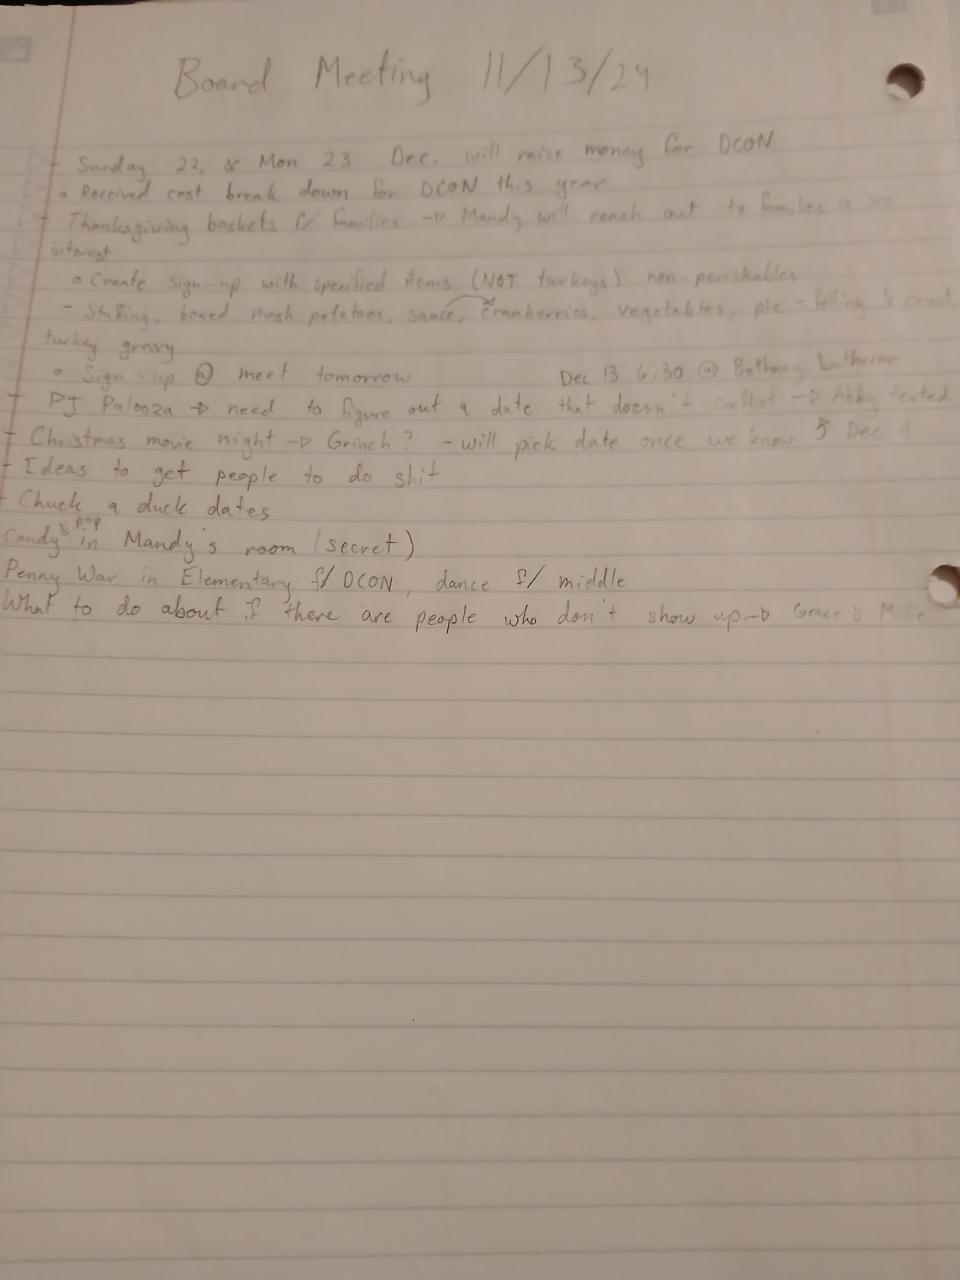 Board Meeting 11/13/24
- Sunday 22, & Mon 23 Dec. will raise money for DCON
o Received cost break down for DCON this year
- Thanksgiving baskets f/ families -> Mandy will reach out to families to see
interest
o Create sign-up with specified items (NOT turkeys) non-perishables
- Stuffing, boxed mash potatoes, sauce, cranberries, vegetables, pie - filling & crust,
turkey gravy
o Sign-up @ meet tomorrow
Dec 13 6:30 @ Bethany Lutheran
- PJ Palooza -> need to figure out a date that doesn't conflict -> Abby texted
- Christmas movie night -> Grinch? - will pick date once we know Dec
- Ideas to get people to do shit
- Chuck a duck dates
Candy & pop in Mandy's room (secret)
Penny War in Elementary f/ DCON, dance f/ middle
What to do about if there are people who don't show up -> Grace &